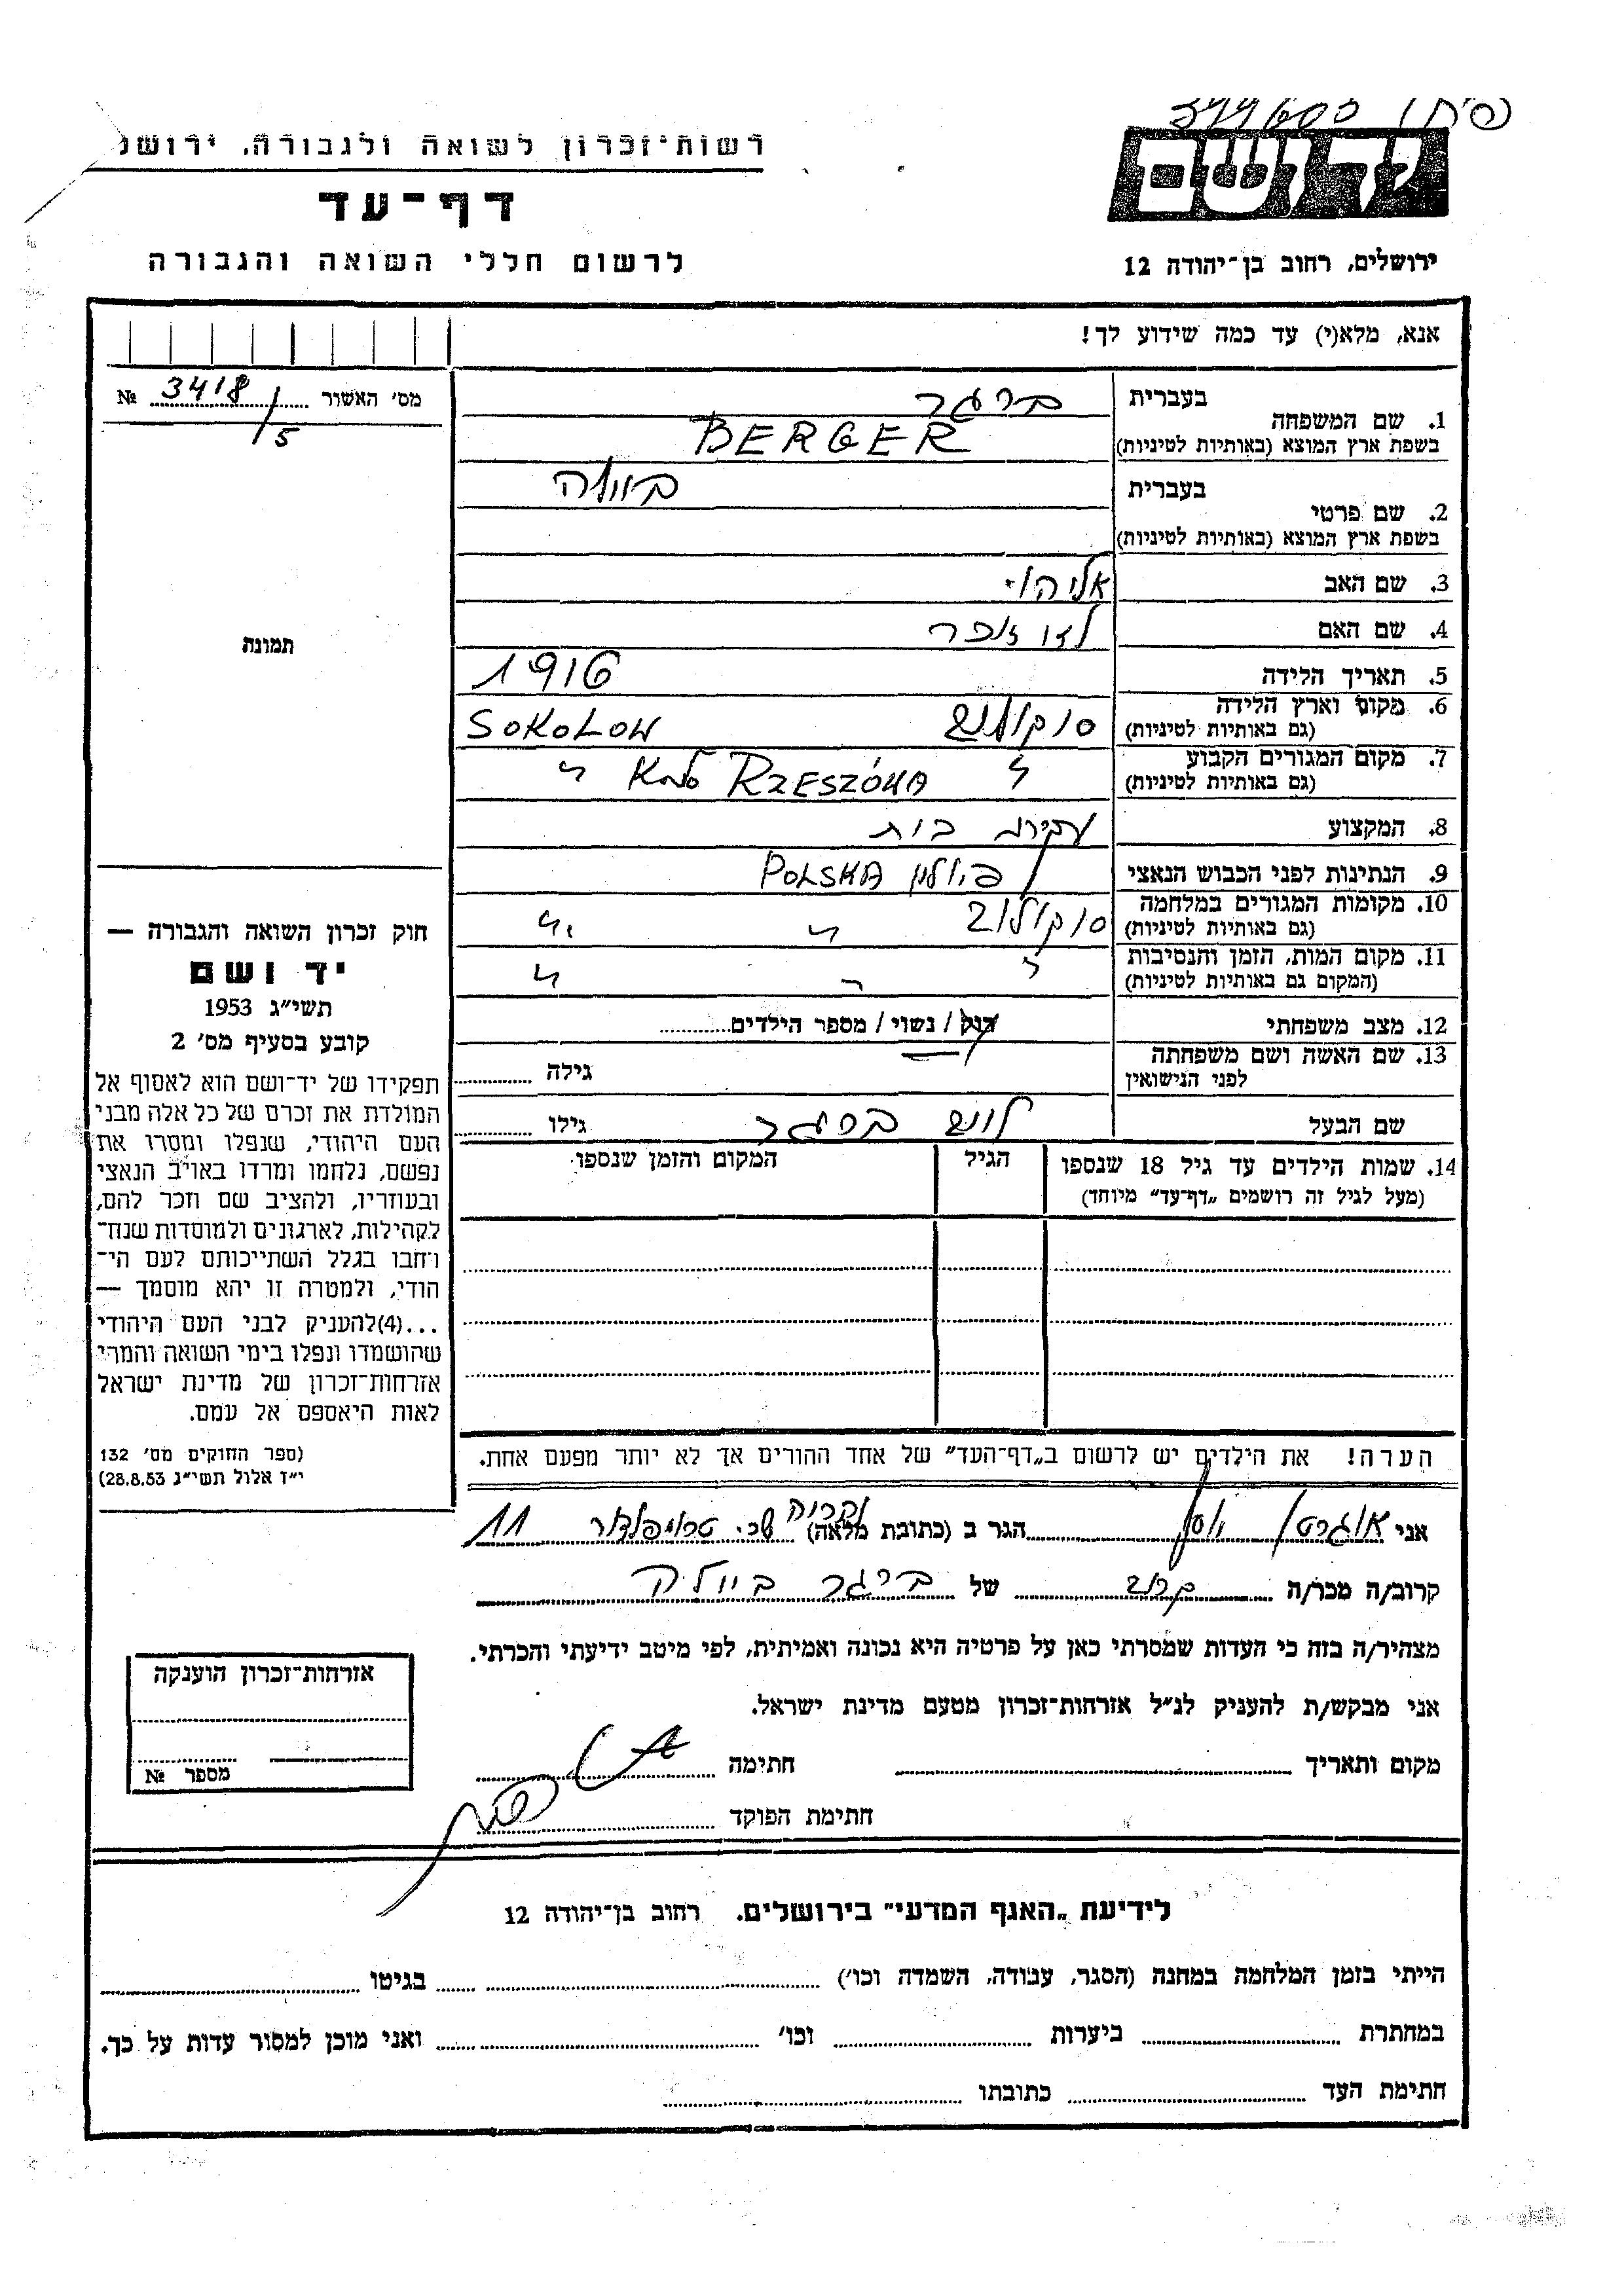 רשות־זכרון לשואה ולגבורה, ירושל
דף־עד
לרשום חללי השואה והגבורה
יד ושם
ירושלים, רחוב בן־יהודה 12
אנא, מלא(י) עד כמה שידוע לך!
מס׳ האשור 3418/5 №
תמונה
1. שם המשפחה
בעברית ברגר
בשפת ארץ המוצא (באותיות לטיניות) BERGER
2. שם פרטי
בעברית
בשפת ארץ המוצא (באותיות לטיניות)
3. שם האב אליהו
4. שם האם
5. תאריך הלידה 1916
6. מקום וארץ הלידה
(גם באותיות לטיניות) SOKOLOW
7. מקום המגורים הקבוע
(גם באותיות לטיניות) " KOLO RZESZÓWA "
8. המקצוע עקרת בית
9. הנתינות לפני הכבוש הנאצי פולין POLSKA
10. מקומות המגורים במלחמה
(גם באותיות לטיניות) סוקולוב " "
11. מקום המות, הזמן והנסיבות
(המקום גם באותיות לטיניות) " " "
12. מצב משפחתי רווק / נשוי / מספר הילדים
13. שם האשה ושם משפחתה
לפני הנישואין גילה
שם הבעל ברגר גילו
14. שמות הילדים עד גיל 18 שנספו
(מעל לגיל זה רושמים „דף־עד” מיוחד)
הגיל
המקום והזמן שנספו
הערה! את הילדים יש לרשום ב„דף־העד” של אחד ההורים אך לא יותר מפעם אחת.
חוק זכרון השואה והגבורה —
יד ושם
תשי״ג 1953
קובע בסעיף מס׳ 2
תפקידו של יד־ושם הוא לאסוף אל
המולדת את זכרם של כל אלה מבני
העם היהודי, שנפלו ומסרו את
נפשם, נלחמו ומרדו באויב הנאצי
ובעוזריו, ולהציב שם וזכר להם,
לקהילות, לארגונים ולמוסדות שנח־
רבו בגלל השתייכותם לעם הי־
הודי, ולמטרה זו יהא מוסמך —
...(4)להעניק לבני העם היהודי
שהושמדו ונפלו בימי השואה והמרי
אזרחות־זכרון של מדינת ישראל
לאות היאספם אל עמם.
(ספר החוקים מס׳ 132
י״ד אלול תשי״ג 28.8.53)
אני יוסף הגר ב (כתובת מלאה) שכ. טרומפלדור 11
קרוב/ה מכר/ה קרוב של ברגר
מצהיר/ה בזה כי העדות שמסרתי כאן על פרטיה היא נכונה ואמיתית, לפי מיטב ידיעתי והכרתי.
אני מבקש/ת להעניק לנ״ל אזרחות־זכרון מטעם מדינת ישראל.
מקום ותאריך חתימה
חתימת הפוקד
אזרחות־זכרון הוענקה
מספר №
לידיעת „האגף המדעי” בירושלים. רחוב בן־יהודה 12
הייתי בזמן המלחמה במחנה (הסגר, עבודה, השמדה וכו׳) בגיטו
במחתרת ביערות וכו׳ ואני מוכן למסור עדות על כך.
חתימת העד כתובתו